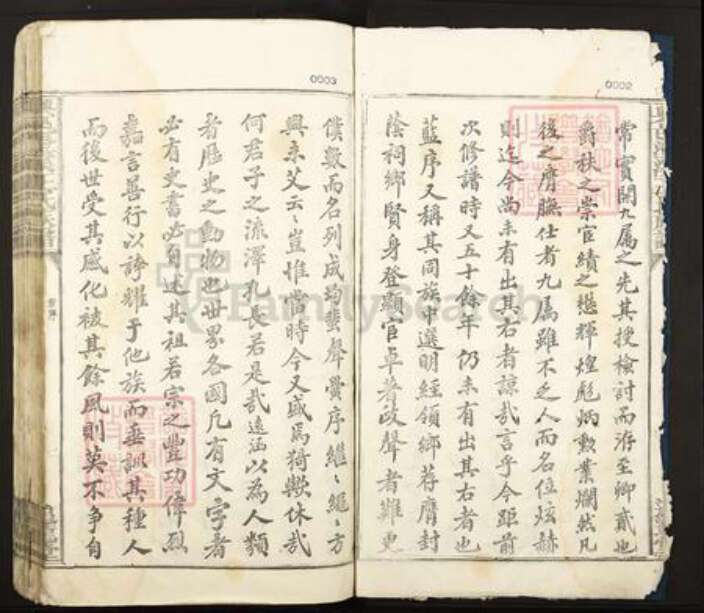 0002
常實開九屬之先其授檢討而洊至卿貳也
爵秩之崇宦績之懋輝煌彪炳勲業爛然凡
後之膺膴仕者九屬雖不乏人而名位炫赫
則迄今尚未有出其右者諒哉言乎今距前
次修譜時又五十餘年仍未有出其右者也
藍序又稱其同族中選明經領鄉荐膺封
蔭祠鄉賢身登顯官卓著政聲者難更
0003
僕數而名列成均蜚聲黌序繼〻繩〻方
興未艾云〻豈惟當時今又盛焉猗歟休哉
何君子之流澤孔長若是哉遠涵以為人類
者歷史之動物也世界各國凡有文字者
必有史書必自述其祖若宗之豐功偉烈
嘉言善行以誇耀于他族而垂訓其種人
而後世受其感化被其餘風則莫不爭自
FamilySearch